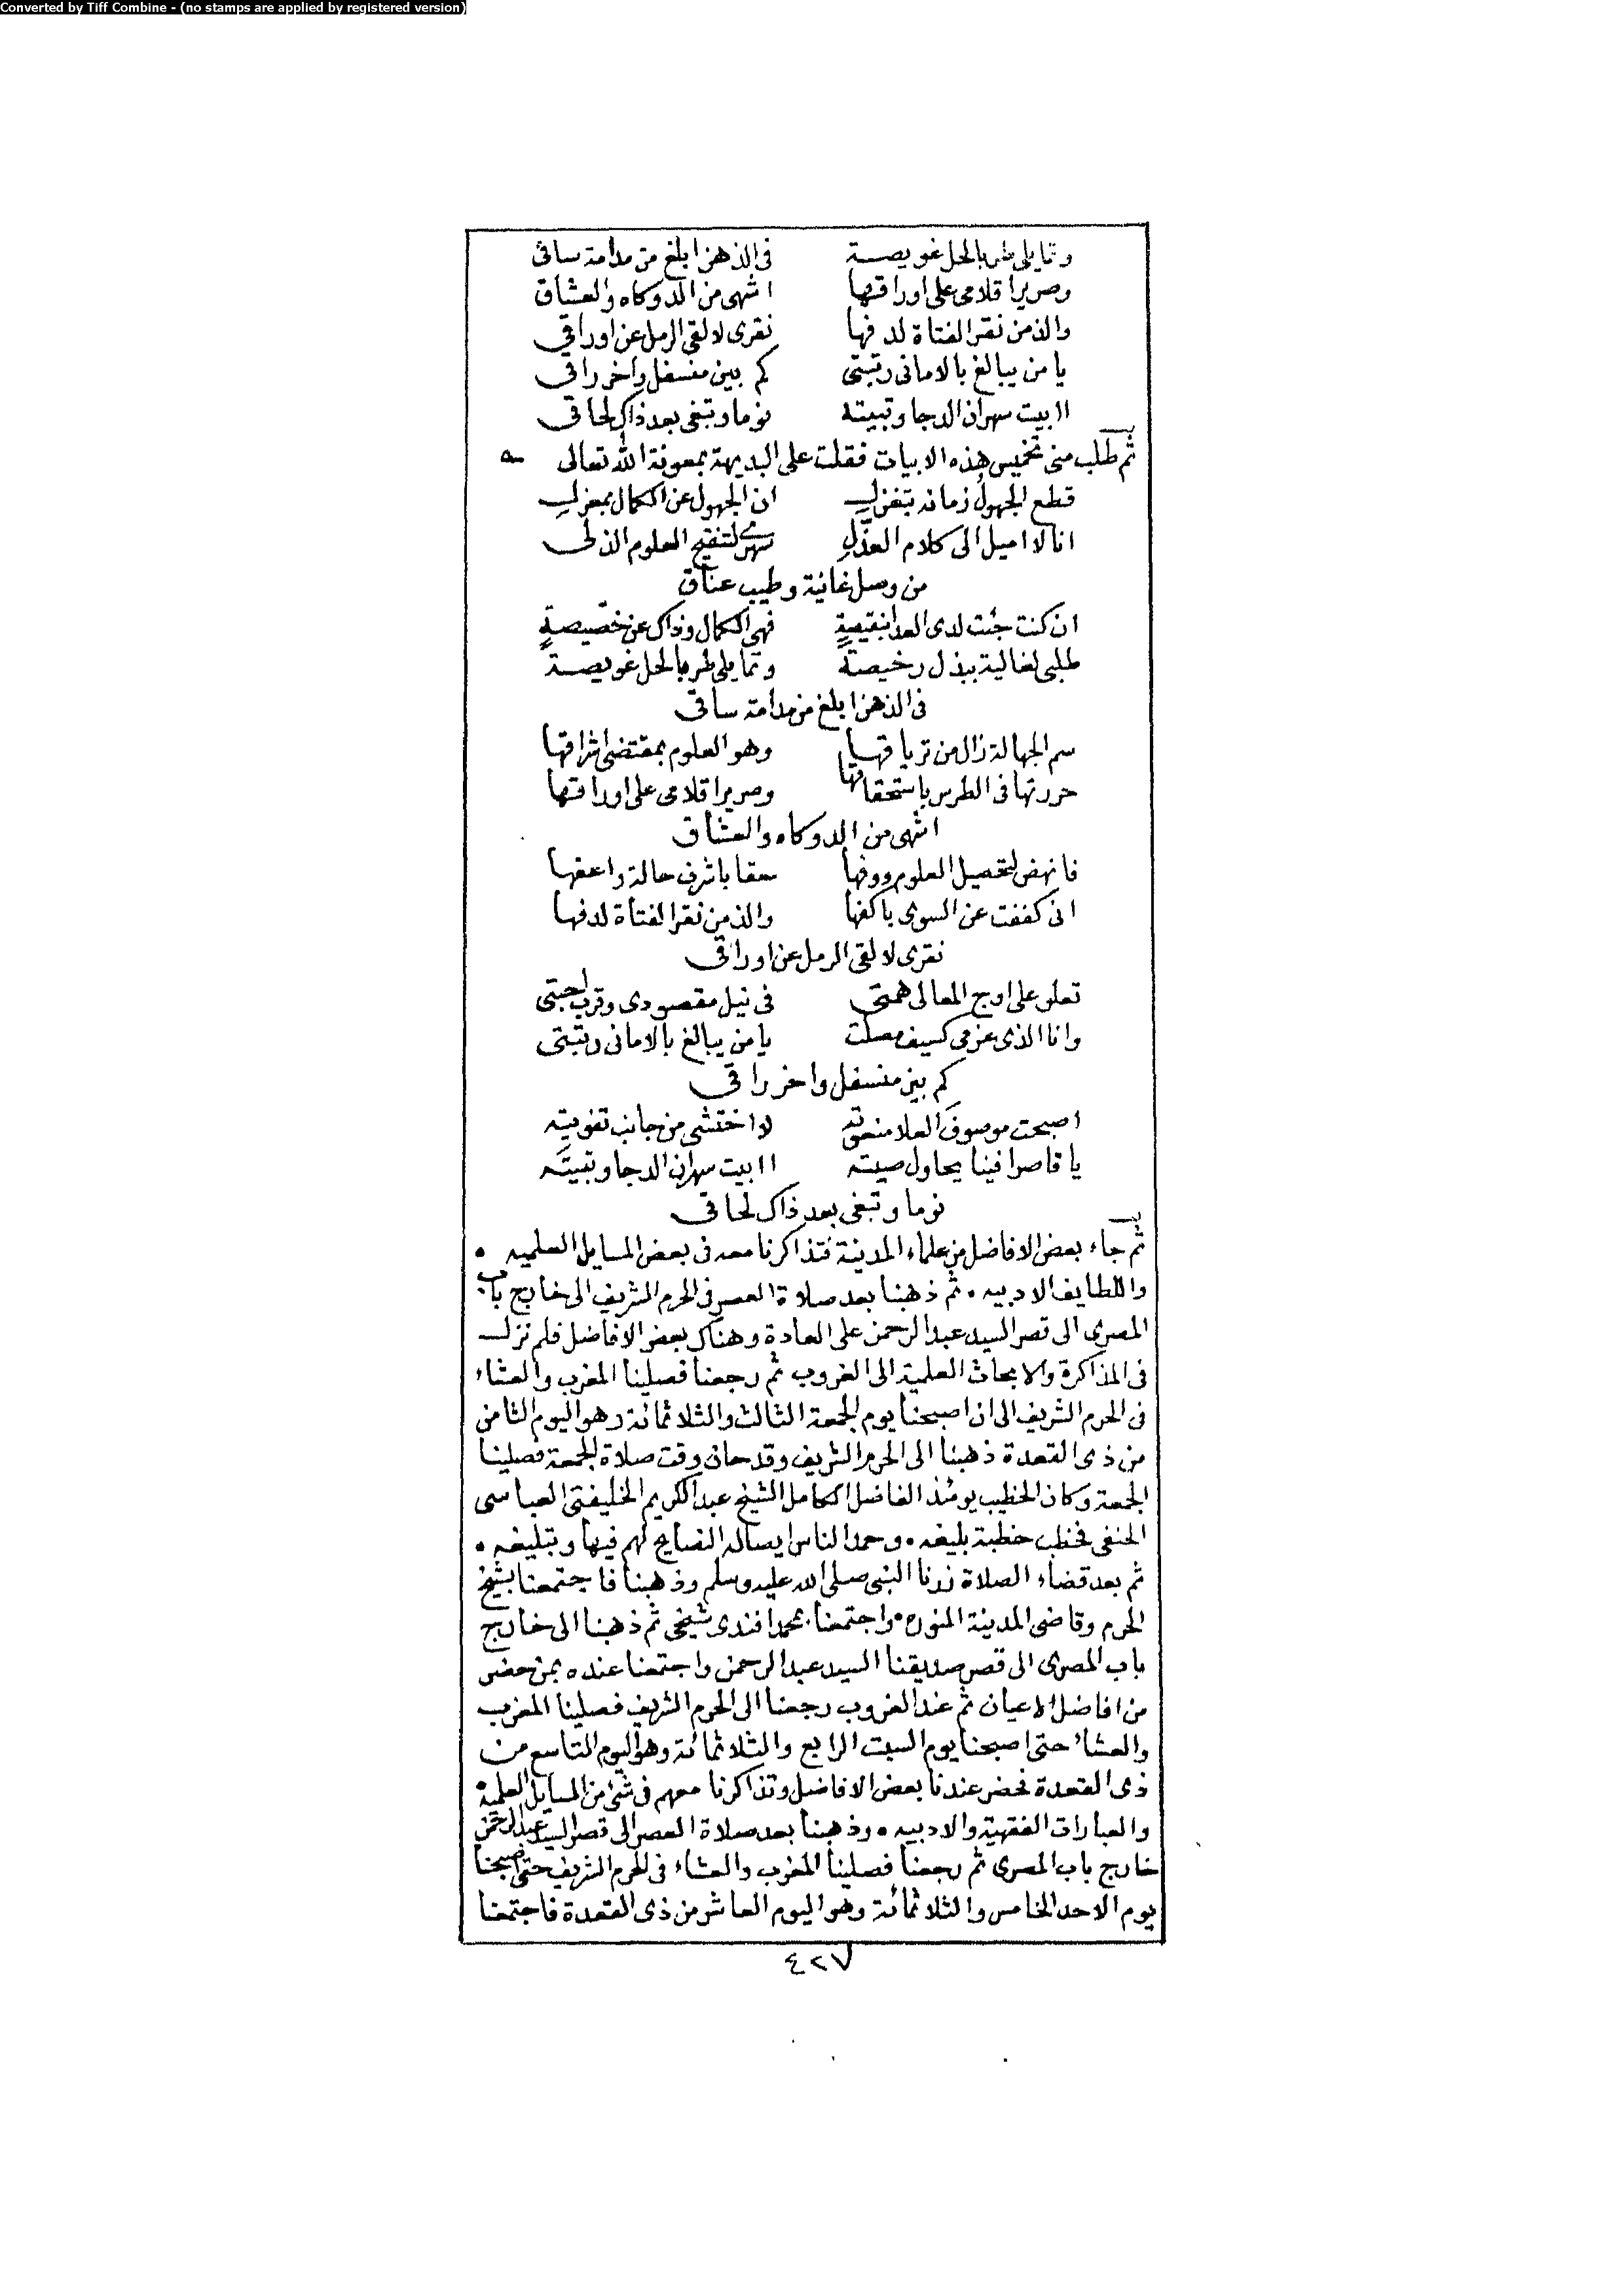 Converted by Tiff Combine - (no stamps are applied by registered version)
وتمايلى طربا لحل عويصة في الذهن ابلغ من مدامة ساقى
وصرير اقلامى على اوراقها اشهى من الدوكاه والعشاق
والذ من نقر الفتاة لدفها نقرى لالقى الرمل عن اوراقى
يا من يبالغ بالامانى رتبتى كم بين منسفل واخر راقى
اابيت سهران الدجا وتبيته نوما وتبغى بعد ذاك لحاقى
ثم طلب منى تخميس هذه الابيات فقلت على البديهة بمعونة الله تعالى
قطع الجهول زمانه بتغزل ان الجهول عن الكمال بمعزل
انا لا اميل الى كلام العذل سهرى لتنقيح العلوم الذ لى
من وصل غانية وطيب عناق
ان كنت جئت لدى العدا بنقيصة فهى الكمال وذاك عن خصيصة
طلبى لغالية ببذل رخيصة وتمايلى طربا لحل عويصة
في الذهن ابلغ من مدامة ساقى
سم الجهالة زال من ترياقها وهو العلوم بمقتضى اشراقها
حررتها فى الطرس باستحقاقها وصرير اقلامى على اوراقها
اشهى من الدوكاه والعشاق
فانهض لتحصيل العلوم ووفها حقا باشرف حالة واعفها
انى كففت عن السوى باكفها والذ من نقر الفتاة لدفها
نقرى لالقى الرمل عن اوراقى
تعلو على اوج المعالى همتى فى نيل مقصودى وقرب احبتى
وانا الذى عزمى كسيف مصلت يا من يبالغ بالامانى رتبتى
كم بين منسفل واخر راقى
اصبحت موصوف العلا منعوته لا اختشى من جانب تفويته
يا قاصرا فينا يحاول صيته اابيت سهران الدجا وتبيته
نوما وتبغى بعد ذاك لحاقى
ثم جاء بعض الافاضل من علماء المدينة فتذاكرنا معه فى بعض المسايل العلميه •
واللطايف الادبيه • ثم ذهبنا بعد صلاة العصر فى الحرم الشريف الى خارج باب
المصرى الى قصر السيد عبد الرحمن على العادة وهناك بعض الافاضل فلم نزل
فى المذاكرة والابحاث العلمية الى الغروب ثم رجعنا فصلينا المغرب والعشاء
فى الحرم الشريف الى ان اصبحنا يوم الجمعة الثالث والثلاثمائة وهو اليوم الثامن
من ذى القعدة ذهبنا الى الحرم الشريف وقد حان وقت صلاة الجمعة فصلينا
الجمعة وكان الخطيب يومئذ الفاضل الكامل الشيخ عبد الكريم الخليفتى العباسى
الحنفى فخطب خطبة بليغه • وحمد الناس ايصاله النصايح لهم فيها وتبليغه •
ثم بعد قضاء الصلاة زرنا النبى صلى الله عليه وسلم وذهبنا فاجتمعنا بشيخ
الحرم وقاضى المدينة المنوره • واجتمعنا بمحمد افندى شيخى ثم ذهبنا الى خارج
باب المصرى الى قصر صديقنا السيد عبد الرحمن واجتمعنا عنده بمن حضر
من افاضل الاعيان ثم عند الغروب رجعنا الى الحرم الشريف فصلينا المغرب
والعشاء حتى اصبحنا يوم السبت الرابع والثلاثمائة وهو اليوم التاسع من
ذى القعدة فحضر عندنا بعض الافاضل وتذاكرنا معهم فى شئ من المسايل العلمية •
والعبارات الفقهية والادبيه • وذهبنا بعد صلاة العصر الى قصر السيد عبد الرحمن
خارج باب المصرى ثم رجعنا فصلينا المغرب والعشاء فى الحرم الشريف حتى اصبحنا
يوم الاحد الخامس والثلاثمائة وهو اليوم العاشر من ذى القعدة فاجتمعنا
٤٢٧